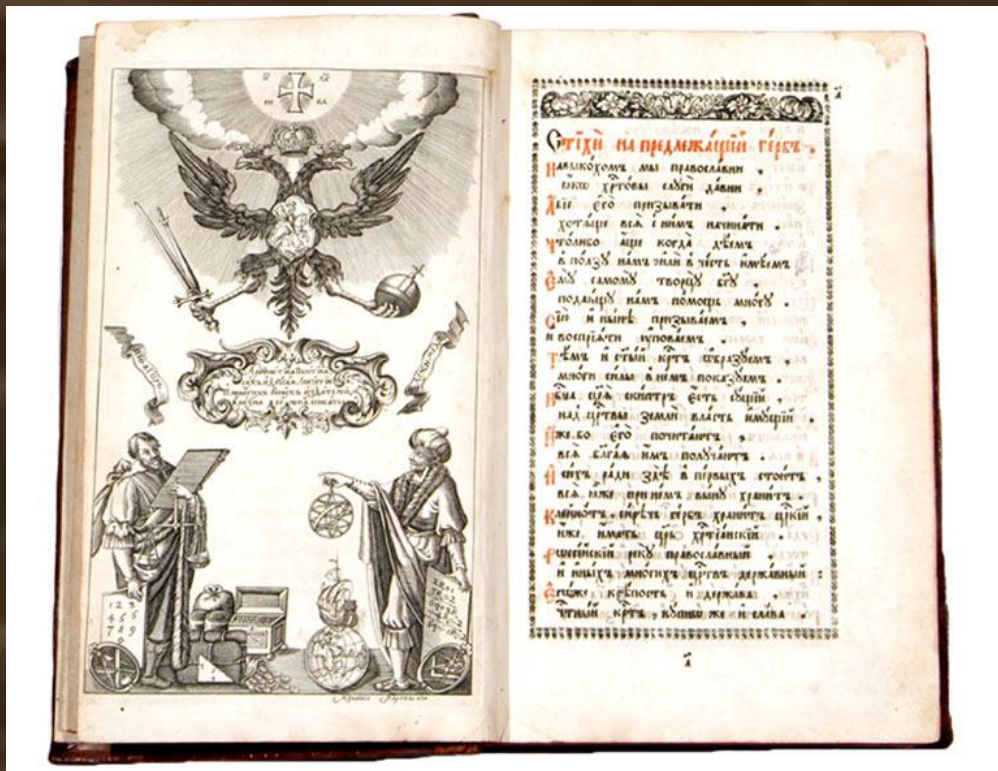 І҃С Х҃С
НИ КА
1 2 3
4 5 6
7 8 9
0
Стїхѝ на предлежа́щїй ге́рбъ .
Навыко́хомъ мы правосла́вни ,
ꙗ҆́кѡ хрⷭ҇то́вы слꙋги̑ да́вни ,
А҆́бїе є҆го̀ призыва́ти ,
хотѧ́ще всѧ̑ с ни́мъ начина́ти .
Что́либо а҆́ще когда̀ дѣ́емъ
в по́лзꙋ на́мъ и҆лѝ в че́сть и҆мѣ́емъ
Є҆мꙋ̀ самомꙋ̀ творцꙋ̀ бг҃ꙋ
подаю́щꙋ на́мъ по́мощь мно́гꙋ .
Сїѐ и҆ ны́нѣ призыва́емъ ,
и воспрїѧ́ти ᲂу҆пова́емъ .
Тѣ́мъ и҆ ст҃ы́й крⷭ҇тъ ѡ҆бразꙋ́емъ ,
мно́ги си̑лы в не́мъ пока́зꙋемъ .
цр҃ѧ̀ ски́птръ є҆́сть сꙋ́щїй ,
над црⷭ҇твы земли̑ вла́сть и҆мꙋ́щїй
И҆̀же бо є҆го̀ почита́ютъ ,
всѧ̑ бл҃га́ѧ и҆̀мъ полꙋча́ютъ .
И҆ си́хъ ра́ди здѣ̀ в пе́рвыхъ стои́тъ ,
всѧ̑ ꙗ҆̀же при не́мъ вы́нꙋ храни́тъ .
Кле́йнотъ , си́рѣчь ге́рбъ храни́тъ цр҃кїй ,
и҆́же и҆́мать цр҃ь хрⷭ҇тїа́нскїй .
Рѡссі́йскїй рекꙋ̀ правосла́вный ,
и҆ и҆ны́хъ мно́гихъ црⷭ҇твъ держа́вный :
Є҆мꙋ́же крѣ́пость и҆ держа́ва
чⷭ҇тны́й крⷭ҇тъ , кꙋ́пнѡ же и҆ сла́ва .
а҃